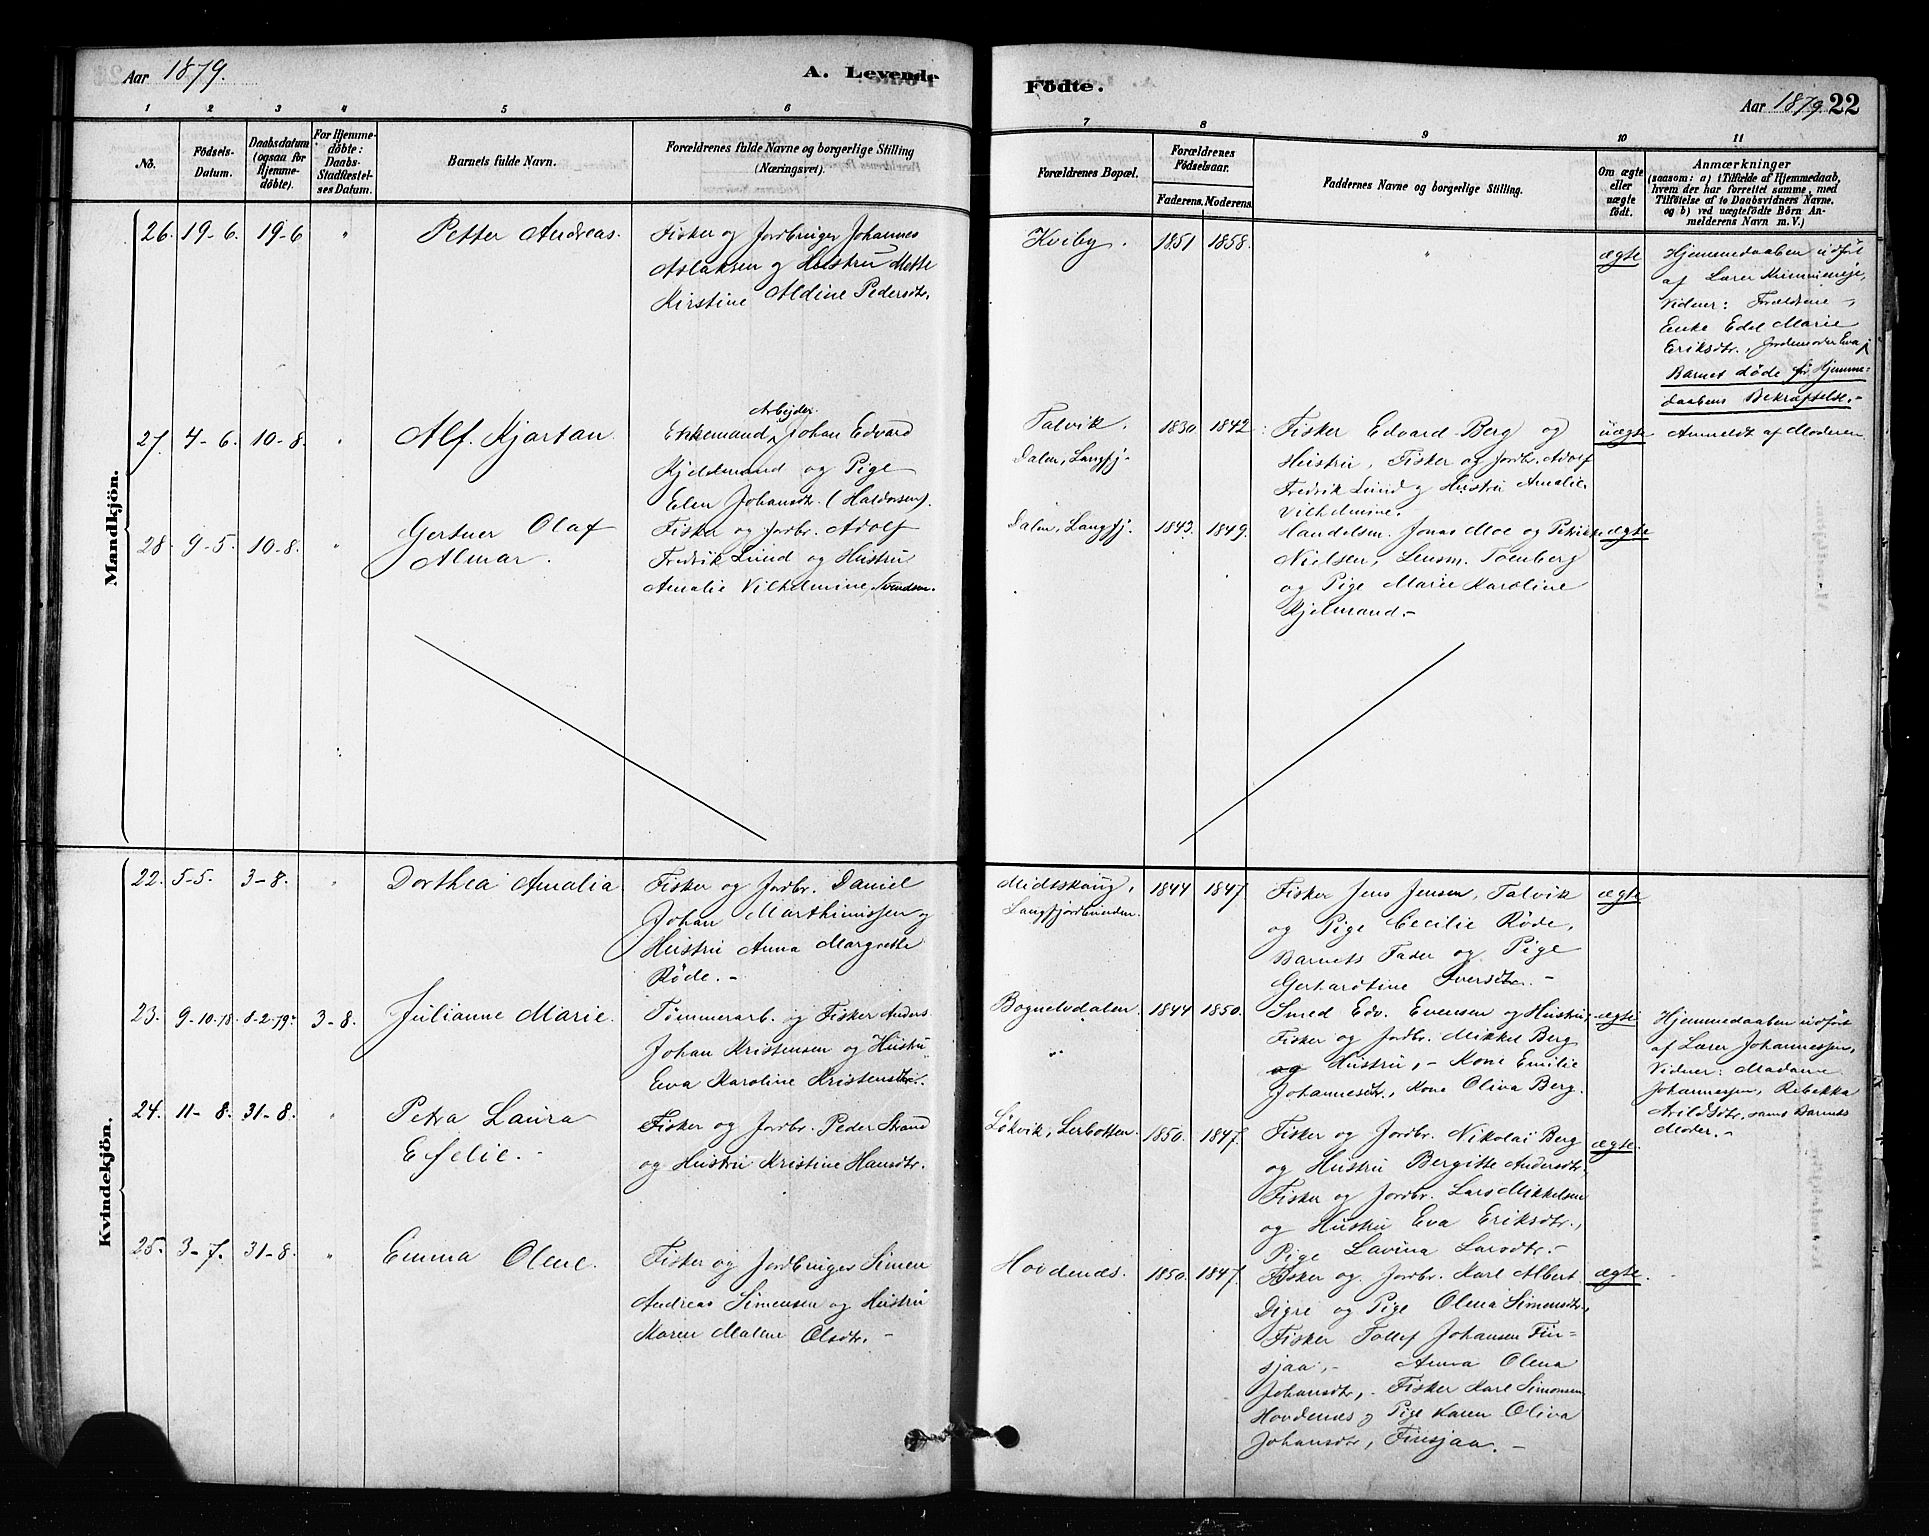 Aar 1879.
A. Levende
1 2 3 4 5 6
No.
Födsels-
Datum.
Daabsdatum
(ogsaa for
Hjemme-
döbte).
For Hjemme-
döbte:
Daabs-
Stadfæstel-
ses Datum.
Barnets fulde Navn.
Forældrenes fulde Navne og borgerlige Stilling
(Næringsvei).
Mandkjön.
26. 19-6. 19-6 " Petter Andreas.
Fisker og Jordbruger Johannes
Aslaksen og Hustru Mette
Kirstine Aldine Pedersdtr.
27. 4-6. 10-8. " Alf Kjartan
Arbejder
Enkemand Johan Edvard
Kjeldmand og Pige
Elen Johansdtr. (Haldorsen).
28. 9-5. 10-8. " Gertner Olaf
Almar.
Fisker og Jordbr. Adolf
Fredrik Lund og Hustru
Amalie Vilhelmine Svendsen.
Kvindekjön.
22. 5-5. 3-8. " Dorthea Amalia
Fisker og Jordbr. Daniel
Johan Marthinissen og
Hustru Anna Margrethe
Röde. -
23. 9-10-78. 8-2-79. 3-8. Julianne Marie.
Tømmerarb. og Fisker Anders
Johan Kristensen og Hustru
Eva Karoline Kristensdtr.
24. 11-8. 31-8. " Petra Laura
Efelie. -
Fisker og Jordbr. Peder Strand
og Hustru Kristine Hansdtr.
25. 3-7. 31-8. " Emma Olene.
Fisker og Jordbruger Simen
Andreas Simensen og Hustru
Karen Malene Olsdtr. -
Födte.
Aar 1879. 22
7 8 9 10 11
Forældrenes Bopæl.
Forældrenes
Födselsaar.
Faderens. Moderens.
Faddernes Navne og borgerlige Stilling.
Om ægte
eller
uægte
födt.
Anmærkninger
(saasom: a) i Tilfælde af Hjemmedaab,
hvem der har forrettet samme, med
Tilföielse af to Daabsvidners Navne.
og b) ved uægtefödte Börn An-
melderens Navn m. V.)
Kviby. 1851 1858. " ægte
Hjemmedaaben udført
af Lærer
Vidner: Forældrene -,
Enke Edel Marie
Eriksdtr., Jordemoder Eva
Barnet døde før Hjemme-
daabens Bekræftelse. -
Talvik.
Dalen, Langfj.
1830 1842.
Fisker Edvard Berg og
Hustru, Fisker og Jordbr. Adolf
Fredrik Lund og Hustru Amalie
Vilhelmine.
uægte
Anmeldt af Moderen
Dalen, Langfj. 1843. 1849.
Handelsm. Jonas Moe og
Nielsen, Lensm. Tønberg
og Pige Marie Karoline
Kjelmand. -
ægte
Midtskoug,
Langfjordbunden.
1844 1847.
Fisker Jens Jensen, Talvik
og Pige Cecilie Röde,
Barnets Fader og Pige
Gerhardtine Iversdtr. -
ægte
Bognelvdalen.
"
1844 1850.
Smed Edv. Evensen og Hustru,
Fisker og Jordbr. Mikkel Berg
og Hustru, - Kone Emilie
Johannesdtr., Kone Oliva Berg.
ægte
Hjemmedaaben udført
af Lærer Johannessen,
Vidner: Madame
Johannessen, Rebekka
Arildsdtr. samt Barnets
Moder. -
Løkvik, Lerbotten. 1850. 1847.
Fisker og Jordbr. Nikolai Berg
og Hustru Bergitte Andersdtr.,
Fisker og Jordbr. Lars Mikkelsen
og Hustru Eva Eriksdtr.,
Pige Lavina Larsdtr. -
ægte.
Hovdenæs. 1850. 1847.
Fisker og Jordbr. Karl Albert
Digre og Pige Olena Simonsdtr.,
Fisker Tollef Johansen Fin-
sjaa, - Anna Olena
Johansdtr, - Fisker Karl Simonsen
Hovdenes og Pige Karen Oliva
Johansdtr, Finsjaa. -
ægte.